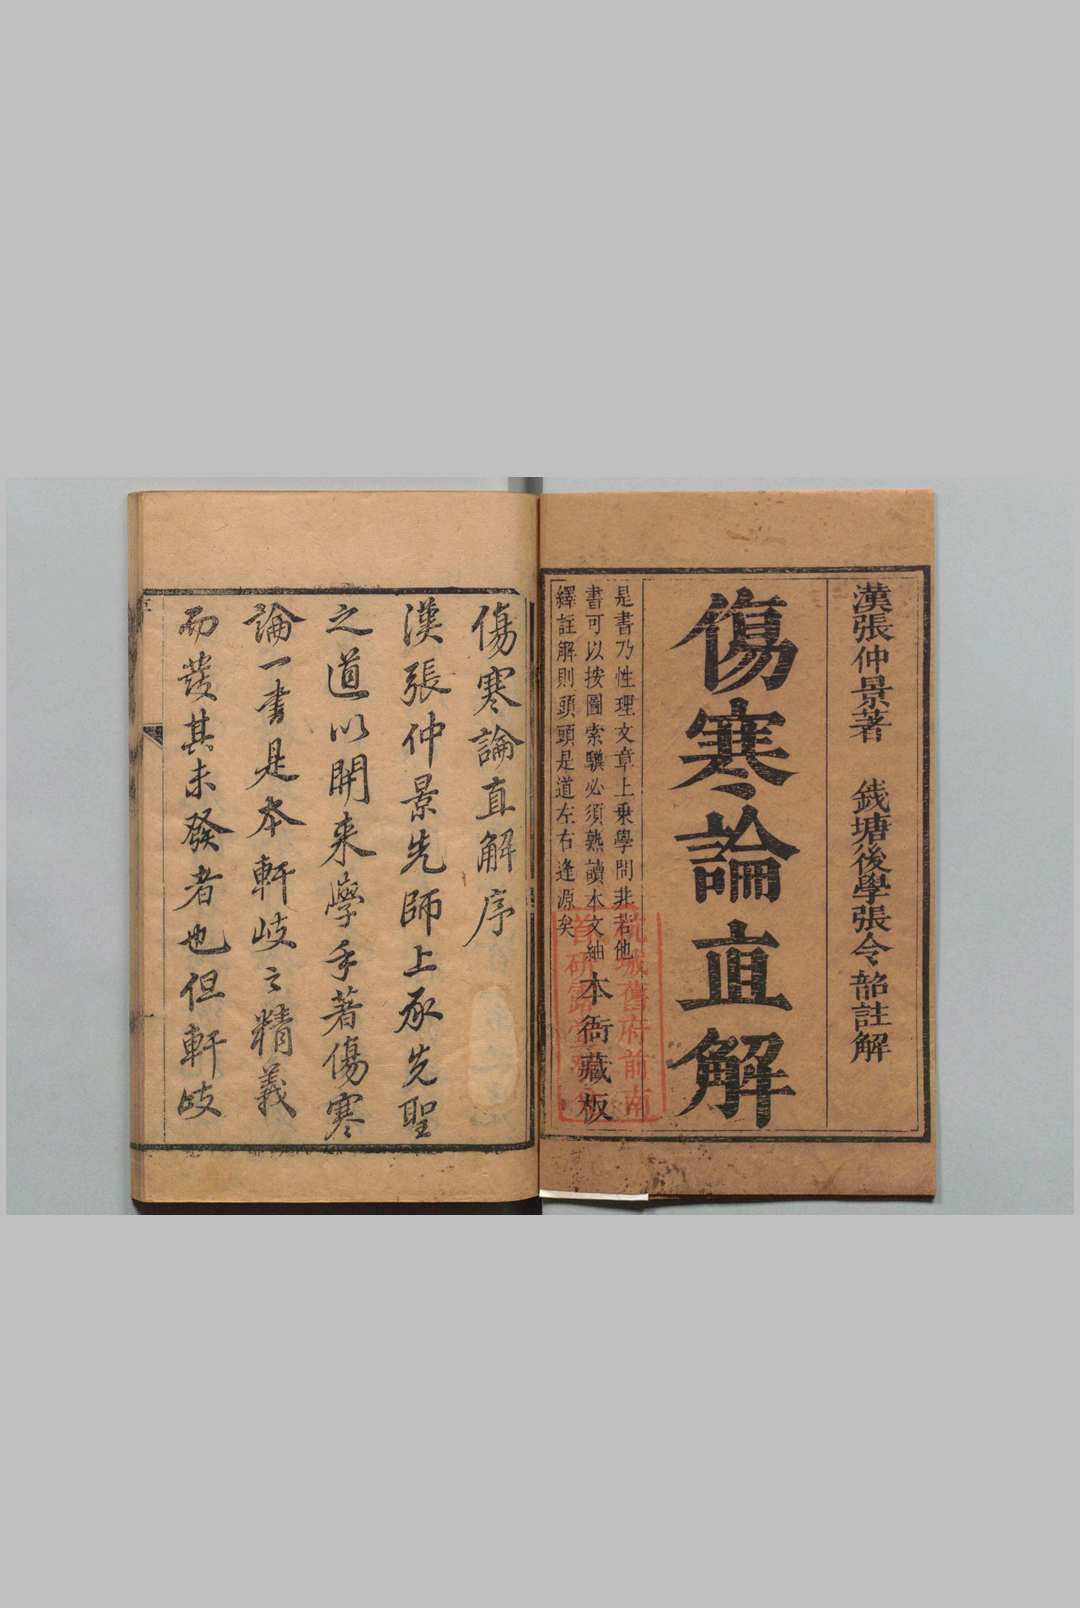 漢張仲景著　錢塘後學張令韶註解
傷寒論直解
是書乃性理文章上乘學問非若他
書可以按圖索驥必須熟讀本文紬
繹註解則頭頭是道左右逢源矣
本衙藏板
杭城舊府前南
首研露堂
傷寒論直解序
漢張仲景先師上承先聖
之道以開来學手著傷寒
論一書是本軒岐之精義
而發其未發者也但軒岐